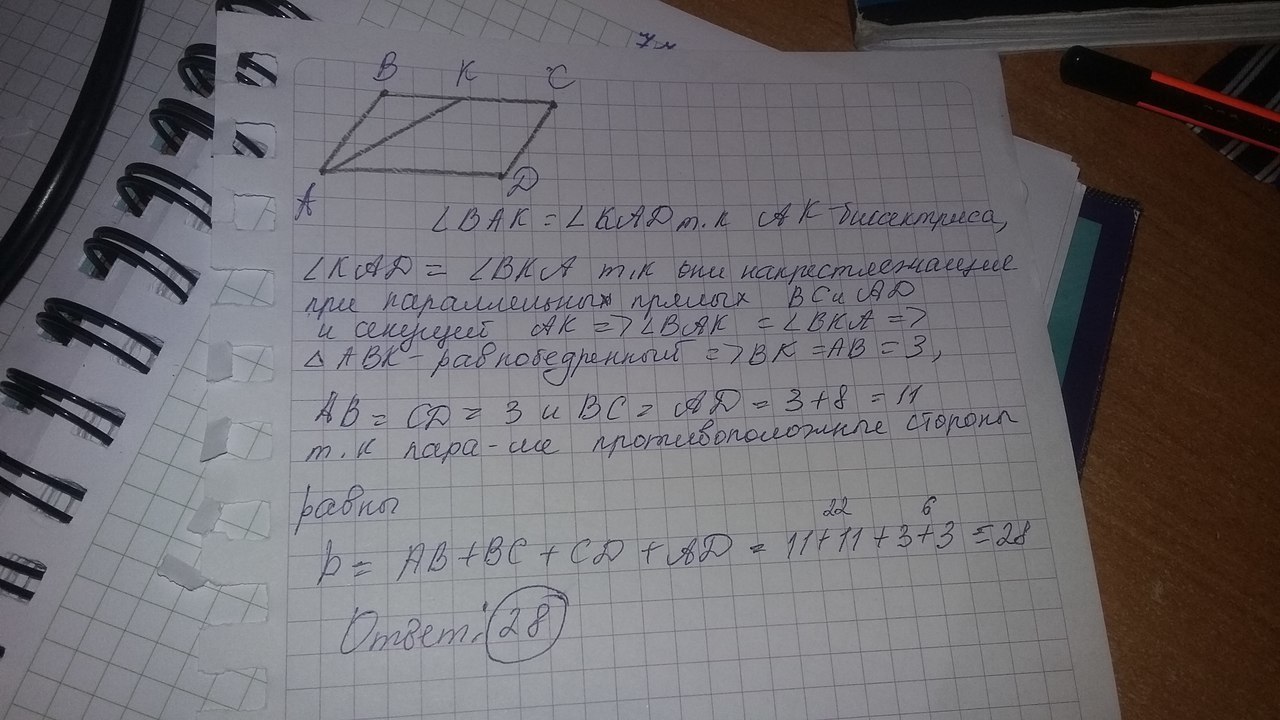 7м
B K C
A D
∠BAK = ∠KAD т.к AK-биссектриса,
∠KAD = ∠BKA т.к они накрестлежащие
при параллельных прямых BC и AD
и секущей AK => ∠BAK = ∠BKA =>
△ABK - равнобедренный => BK = AB = 3,
AB = CD = 3 и BC = AD = 3+8 = 11
т.к пара-ме противоположные стороны
равны
22 6
p = AB + BC + CD + AD = 11+11+3+3 = 28
Ответ: 28